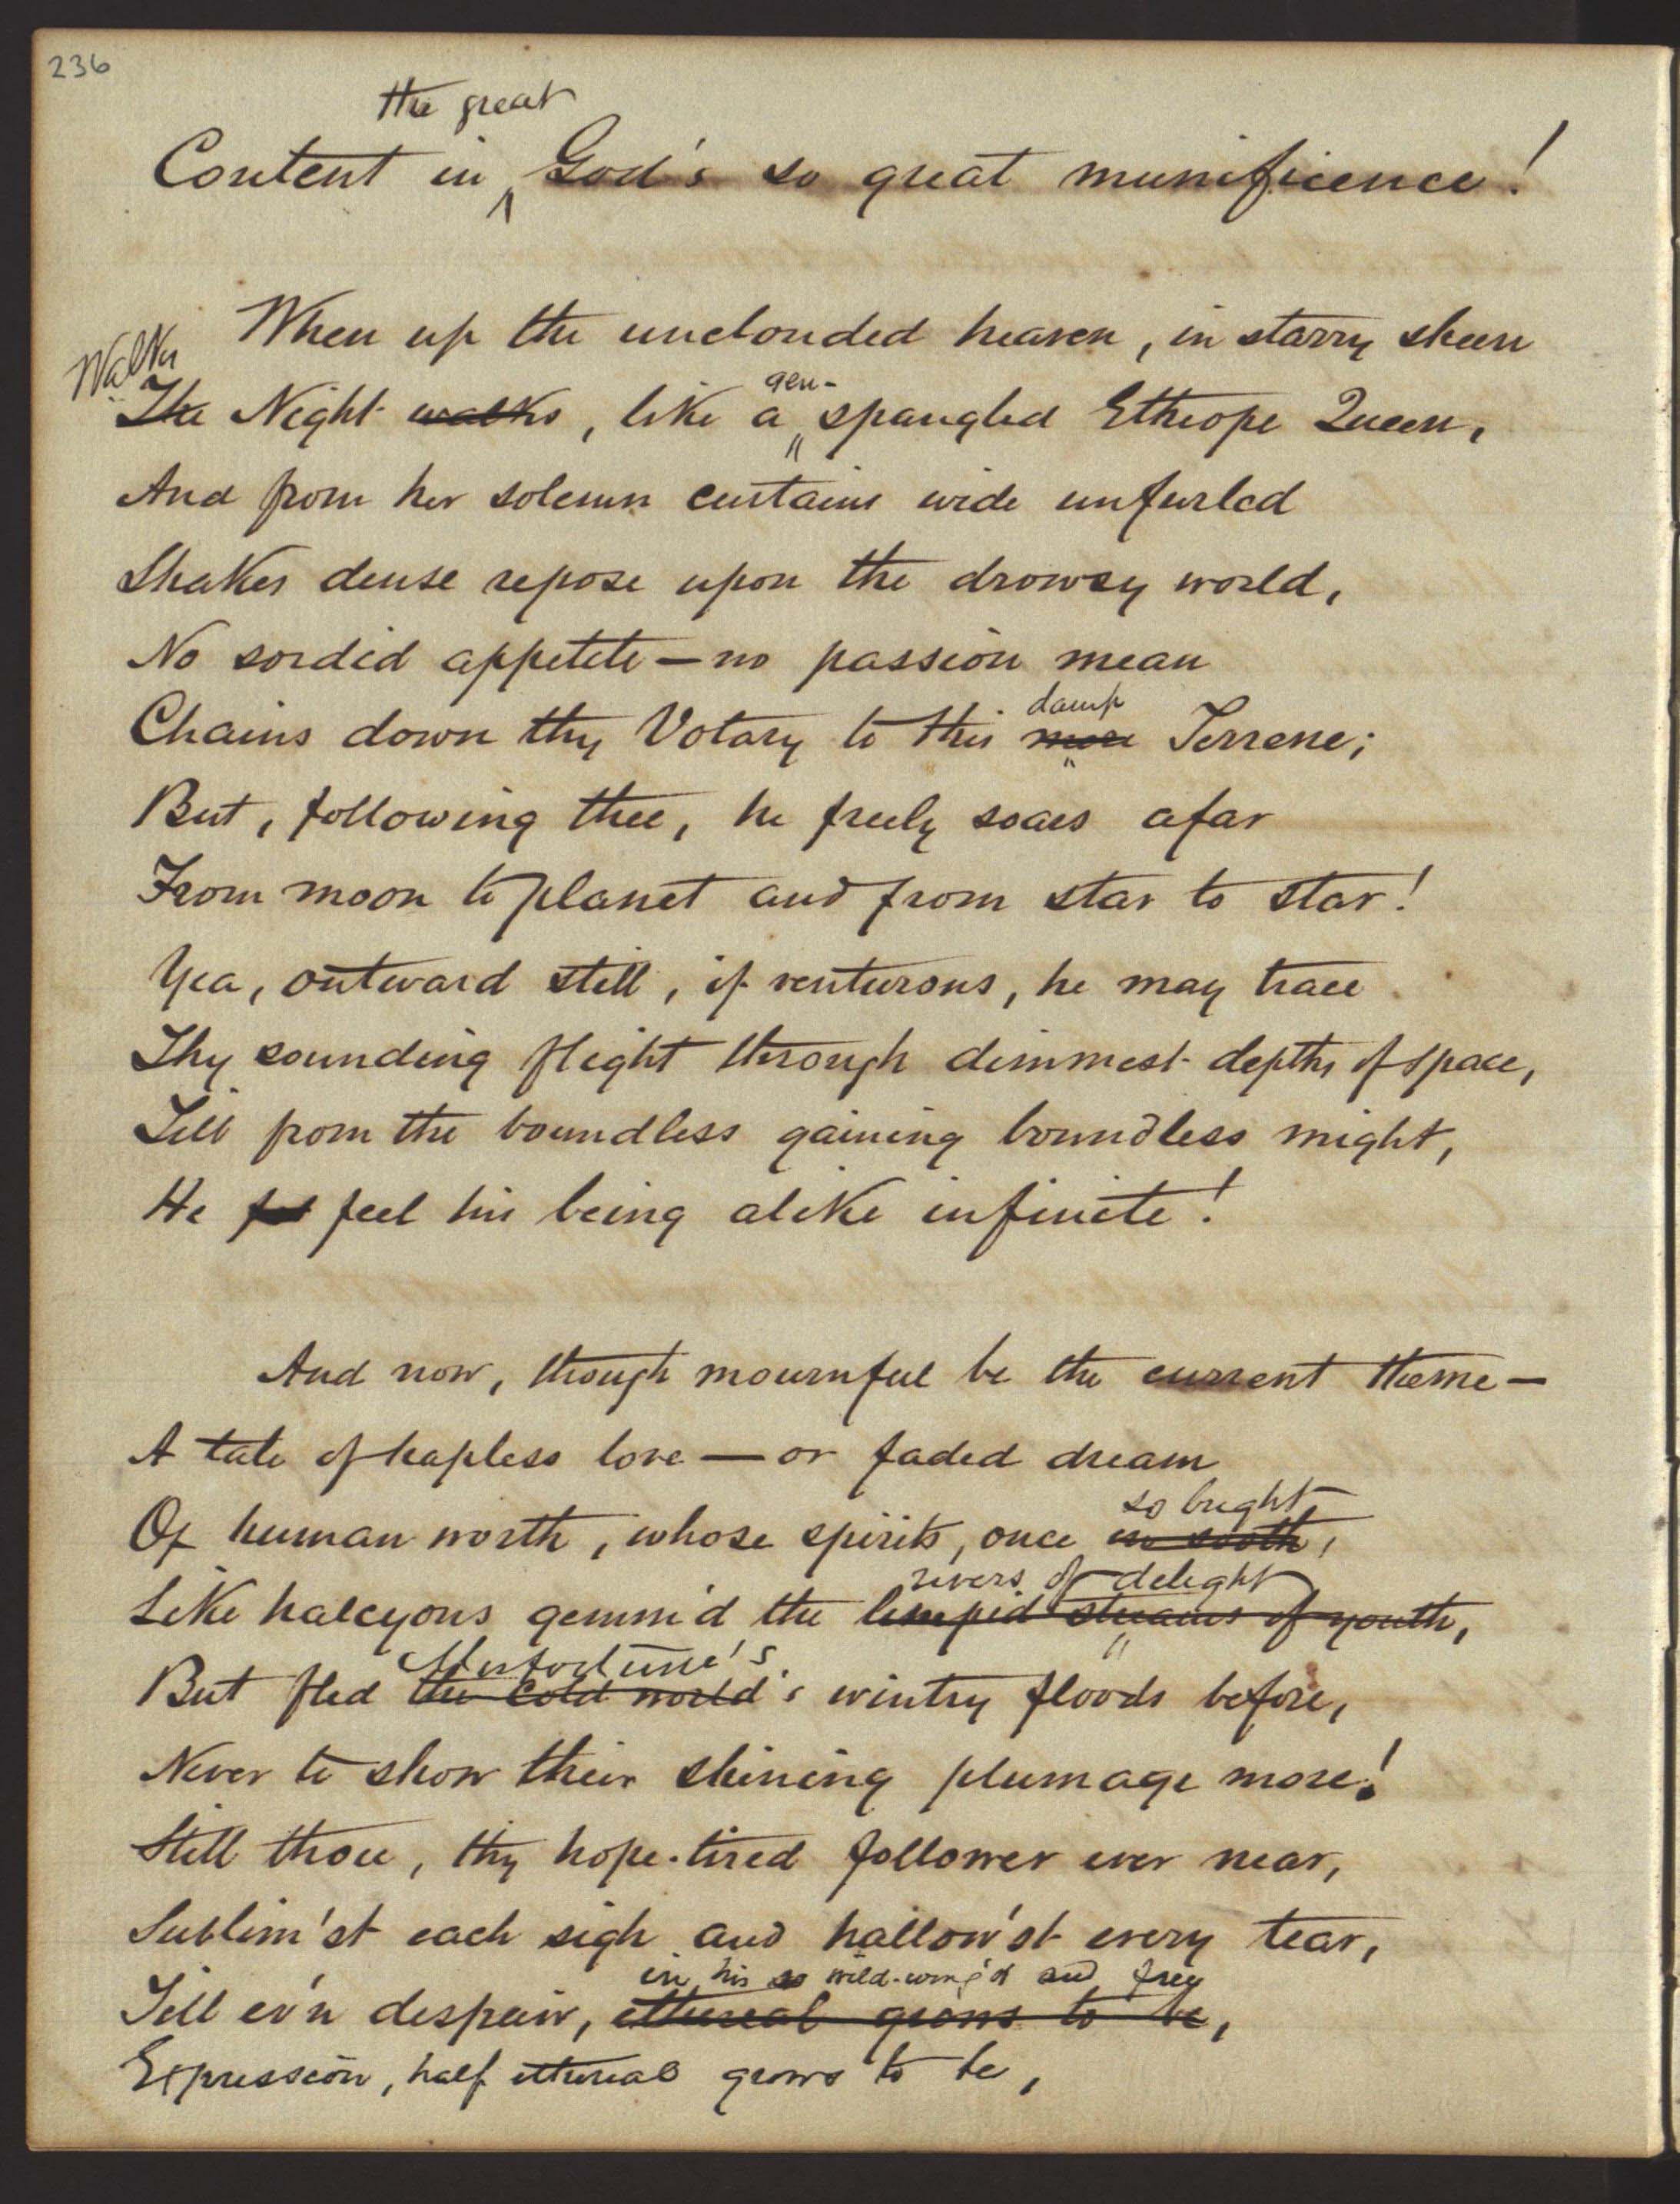 236
the great
Content in ‸ God's so great munificence!
When up the unclouded heaven, in starry sheen
Walks
The Night walks, like a gem-spangled Ethiope Queen,
And from her solemn curtains wide unfurled
Shakes dense repose upon the drowsy world,
No sordid appetite — no passion mean
damp
Chains down thy Votary to this mere Terrene;
But, following thee, he freely soars afar
From moon to planet and from star to star!
Yea, outward still, if venturous, he may trace
Thy sounding flight through dimmest depths of space,
Till from the boundless gaining boundless might,
He feel his being alike infinite!
And now, though mournful be the current theme —
A tale of hapless love — or faded dream
so bright,
Of human worth, whose spirits, once in sooth,
rivers of delight
Like halcyons gemm'd the limpid streams of youth,
Misfortune's
But fled the cold world's wintry floods before,
Never to show their shining plumage more!
Still thou, thy hope-tired follower ever near,
Sublim'st each sigh and hallow'st every tear,
in his so wild-wing'd and free
Till ev'n despair, ethereal grows to be,
Expression, half ethereal grows to be,